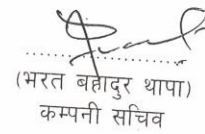 (भरत बहादुर थापा)
कम्पनी सचिव